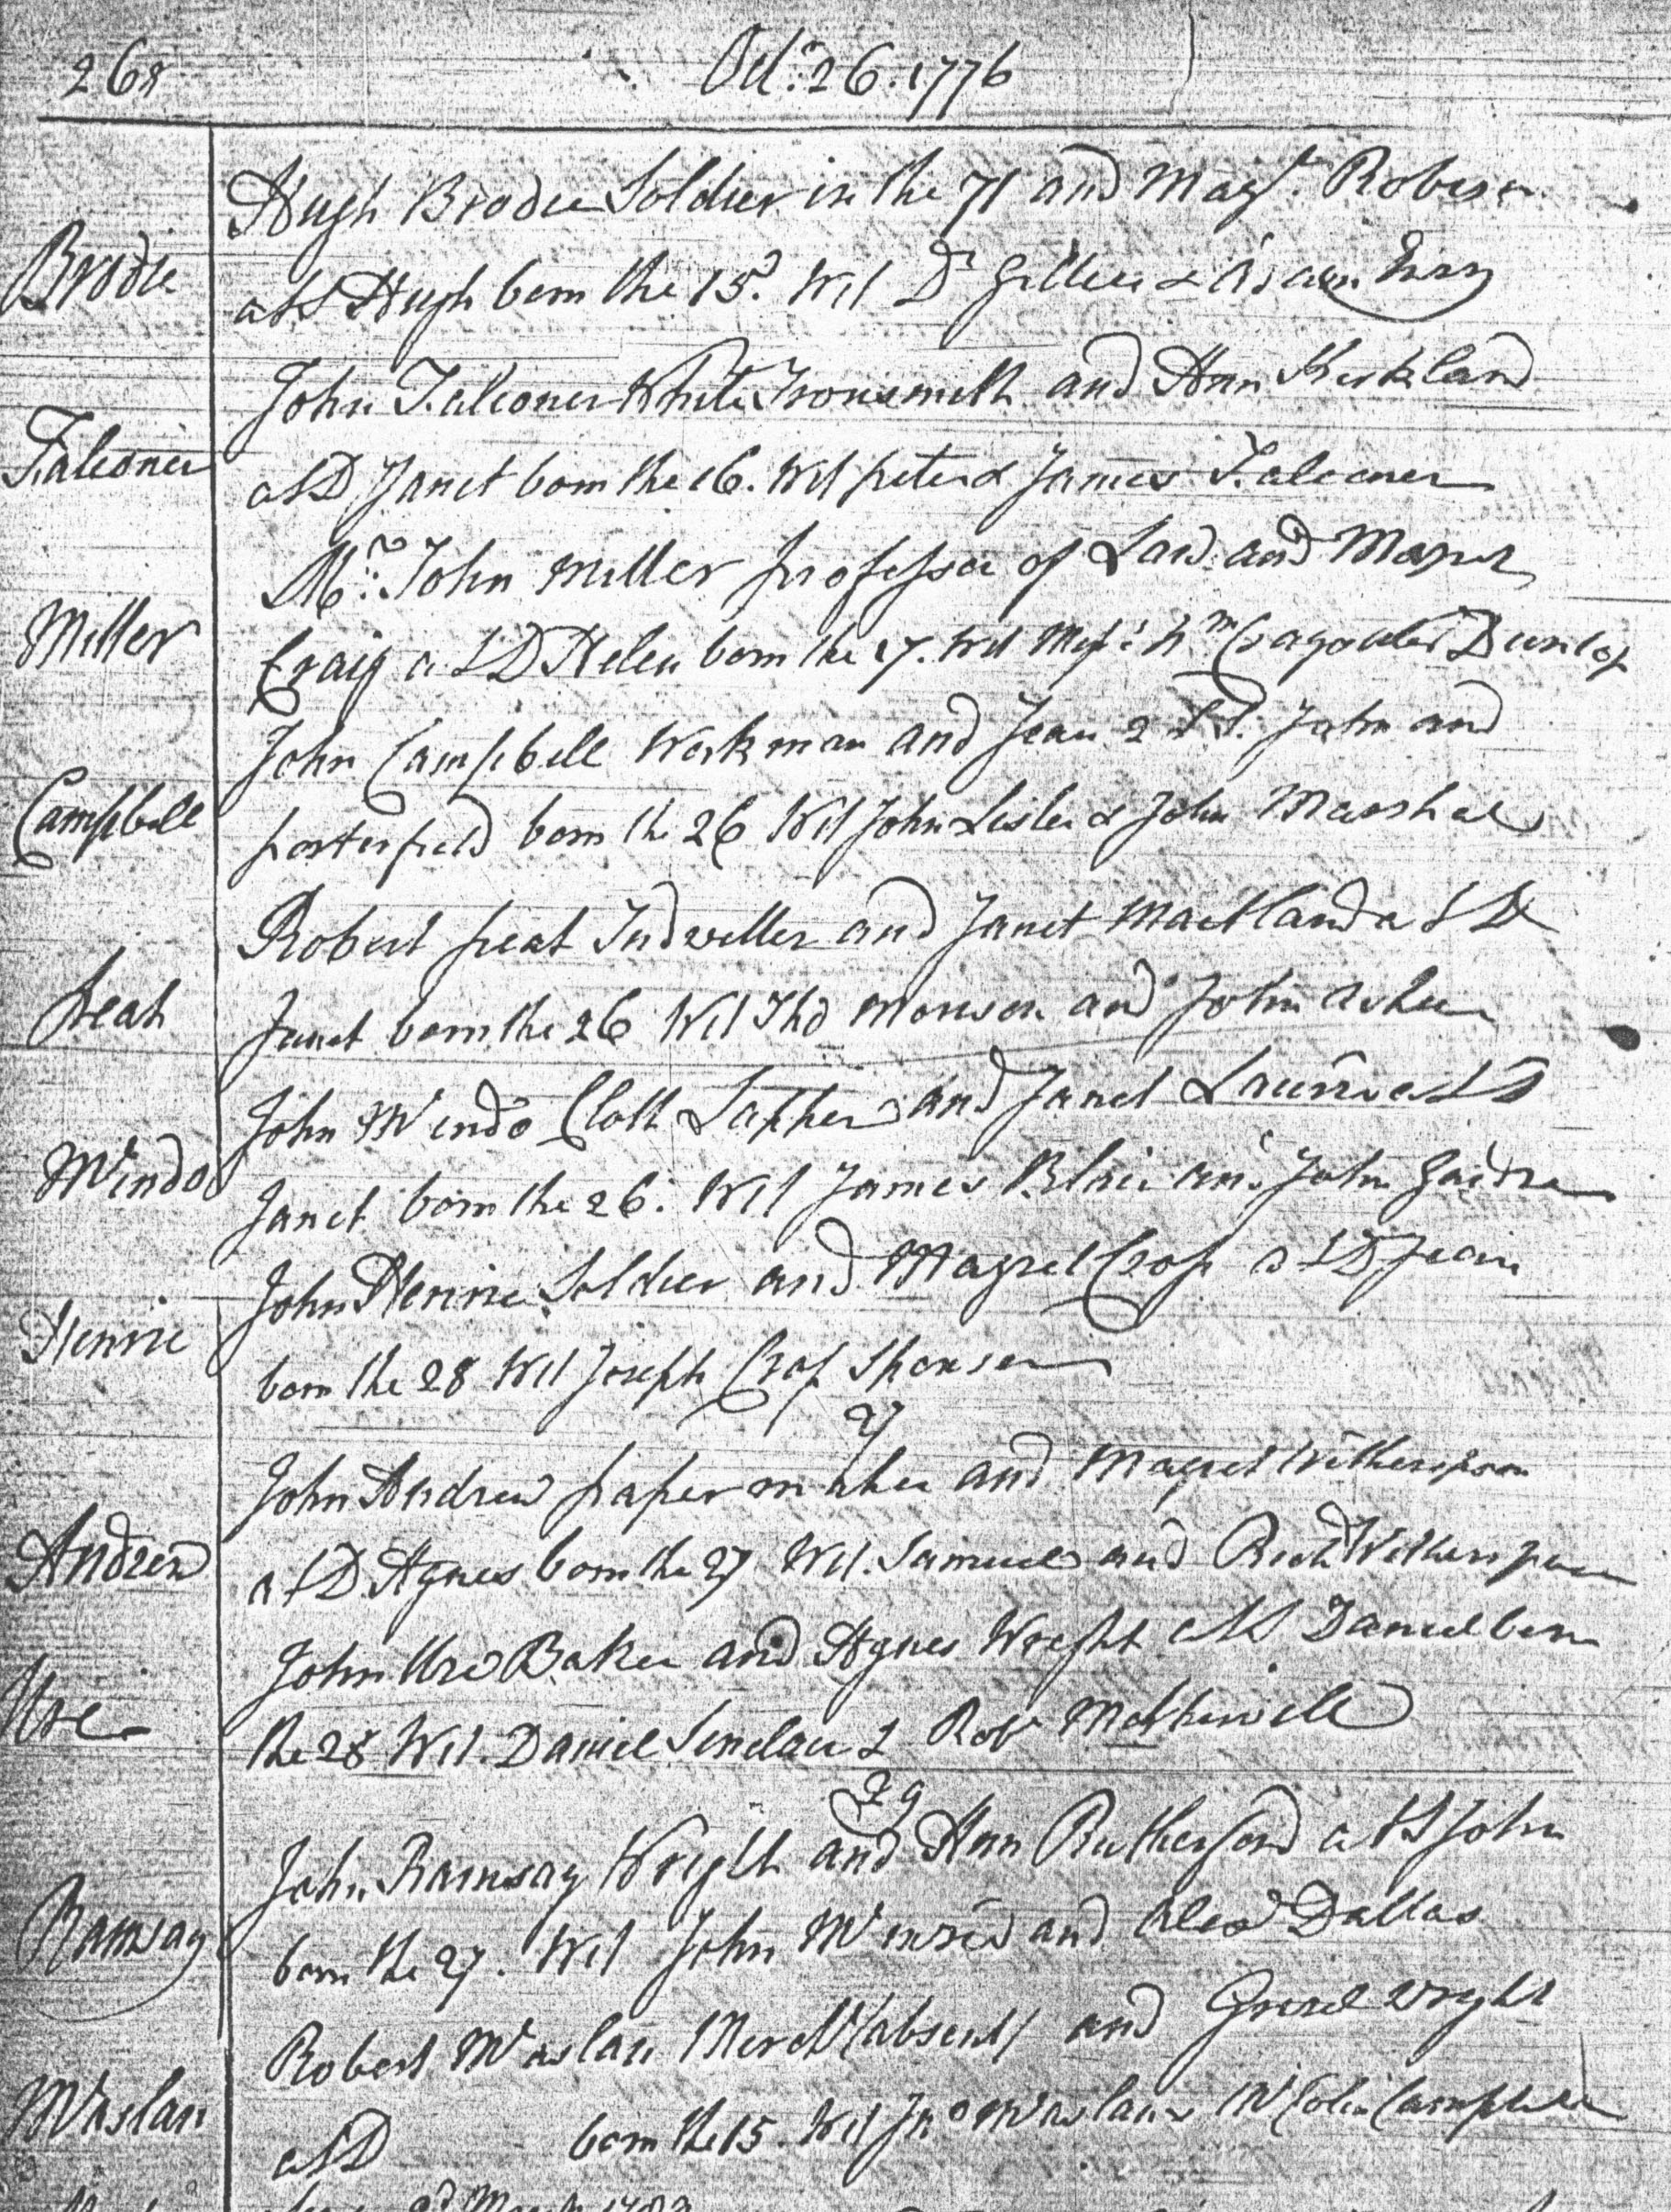 268 Octr. 26. 1776
Brodie
Hugh Brodie Soldier in the 71 and Magt. Roberson
a LS Hugh born the 15. Wit Dd
Falconer
John Falconer White Ironsmith and Ann Kirkland
a LD Janet born the 16. Wit peter & James Falconer
Miller
Mr. John Miller professor of Law and Magret
Craig a LD Helen born the 17. Wit Messrs. Wm Craig & Dunlop
Campbell
John Campbell Workman and Jean John and
porterfield born the 26 Wit John Lislie & John Marshal
peat
Robert peat Indweller and Janet Maitland a LD
Janet born the 26 Wit Tho Morison and John
McIndo
John McIndo Cloth Lapper and Janet a LD
Janet born the 26. Wit James Blair and John
Henrie
John Henrie Soldier and Magret Cross a LD Jean
born the 28 Wit Joseph Cross
27
Andrew
John Andrew paper maker and Magret Witherspoon
a LD Agnes born the 27 Wit. Samuel and Richd Witherspoon
Ure
John Ure Baker and Agnes Wright a LS Daniel born
the 28 Wit. Daniel Sinclair & Robt Motherwell
29
Ramsay
John Ramsay Wright and Ann Rutherford a LS John
born the 27. Wit John and Alexr Dallas
McAslan
Robert McAslan Mercht (absent) and Grizel Wright
a LD born the 15. Wit Jno McAslan & Colin Campbell
March